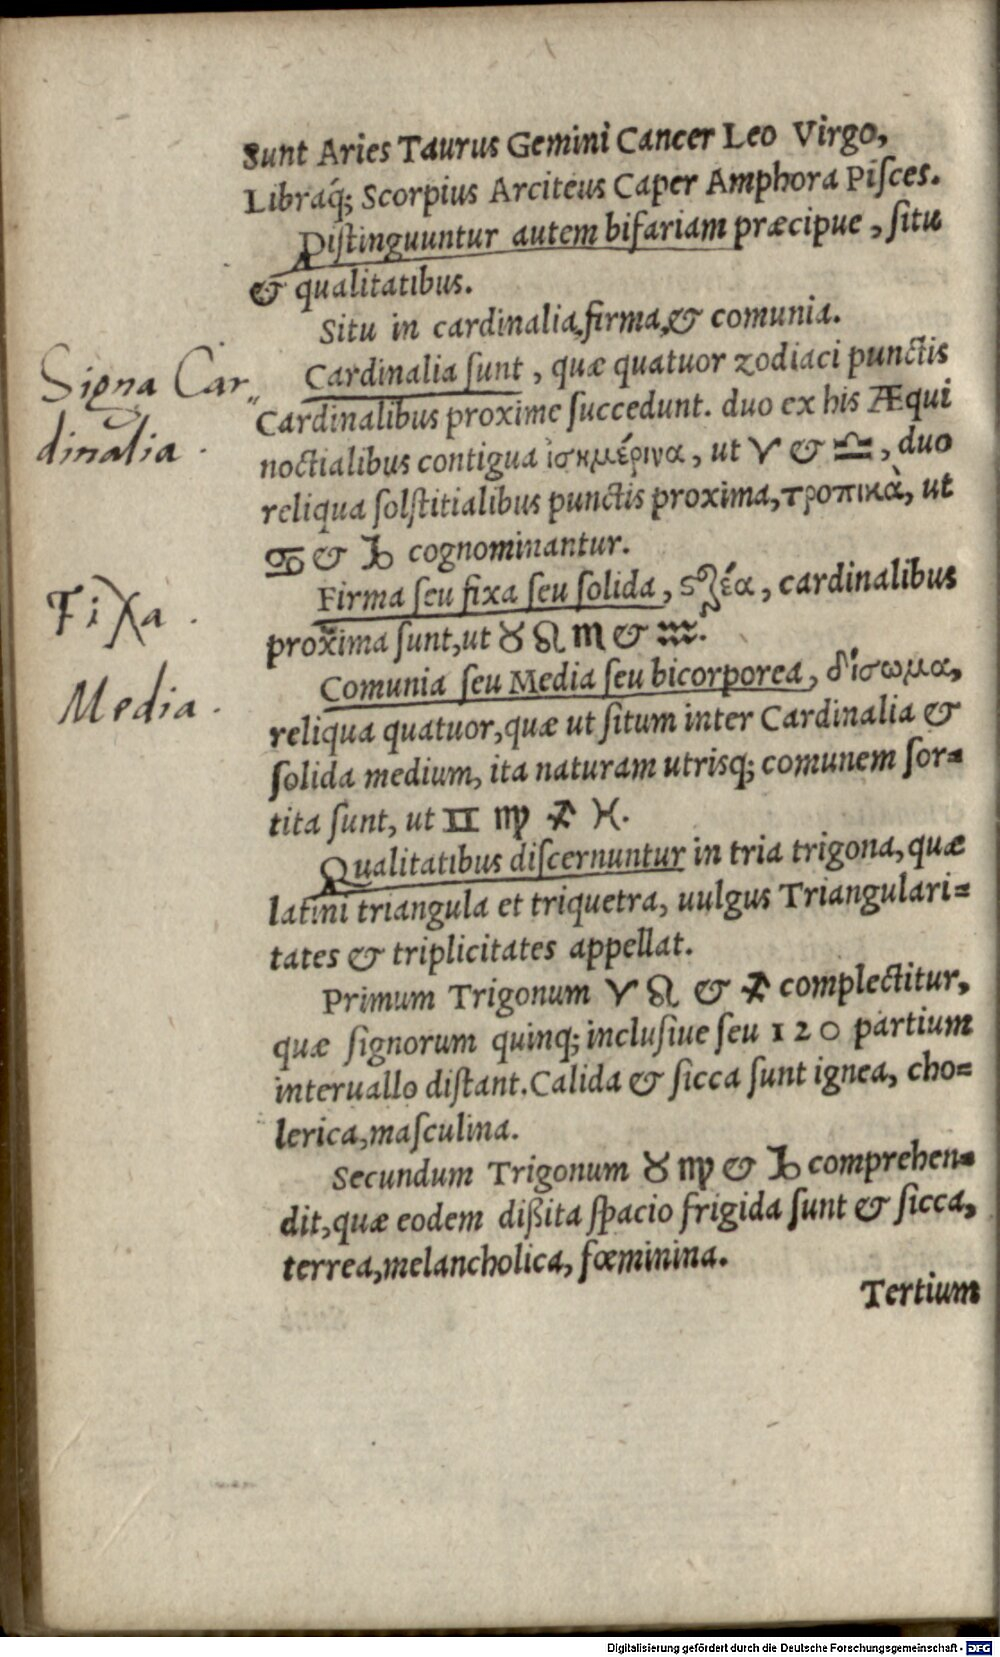 Sunt Aries Taurus Gemini Cancer Leo Virgo,
Libraq́; Scorpius Arcitens Caper Amphora Piſces.
Diſtinguuntur autem bifariam præcipue, ſitu
& qualitatibus.
Situ in cardinalia, firma, & comunia.
Cardinalia ſunt, quæ quatuor zodiaci punctis
Cardinalibus proxime ſuccedunt. duo ex his Æqui
noctialibus contigua ἰσημέρινα, ut ♈ & ♎, duo
reliqua ſolſtitialibus punctis proxima, τροπικὰ, ut
♋ & ♑ cognominantur.
Firma ſeu fixa ſeu ſolida, ςερέα, cardinalibus
proxima ſunt, ut ♉ ♌ ♏ & ♒.
Comunia ſeu Media ſeu bicorporea, δίσωμα,
reliqua quatuor, quæ ut ſitum inter Cardinalia &
ſolida medium, ita naturam utrisq; comunem ſor=
tita ſunt, ut ♊ ♍ ♐ ♓.
Qualitatibus diſcernuntur in tria trigona, quæ
latini triangula et triquetra, uulgus Triangulari=
tates & triplicitates appellat.
Primum Trigonum ♈ ♌ & ♐ complectitur,
quæ ſignorum quinq; incluſiue ſeu 120 partium
interuallo diſtant. Calida & ſicca ſunt ignea, cho=
lerica, maſculina.
Secundum Trigonum ♉ ♍ & ♑ comprehen=
dit, quæ eodem dißita ſpacio frigida ſunt & ſicca,
terrea, melancholica, fœminina.
Tertium
Signa Car„
dinalia.
Fixa.
Media.
Digitalisierung gefördert durch die Deutsche Forschungsgemeinschaft - DFG